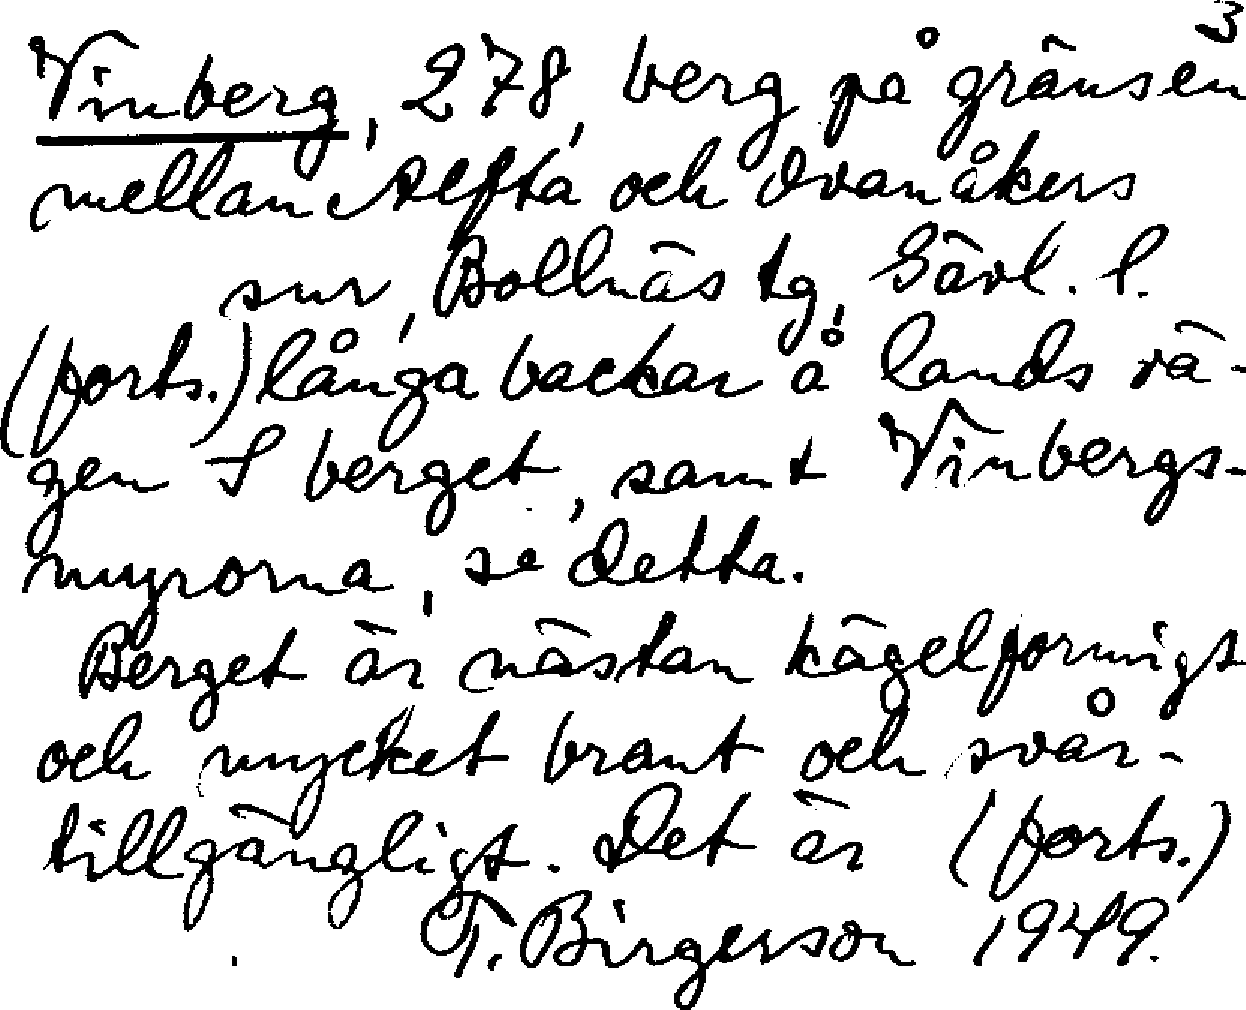 3
Vinberg, 278, berg på gränsen
mellan Alfta och Ovanåkers
snr, Bollnäs tg, Gävl. l.
(forts.) långa backar å lands vä-
gen S berget, samt Vinbergs-
myrorna, se detta.
Berget är nästan kägelformigt
och mycket brant och svår-
tillgängligt. Det är (forts.)
T. Birgerson 1949.